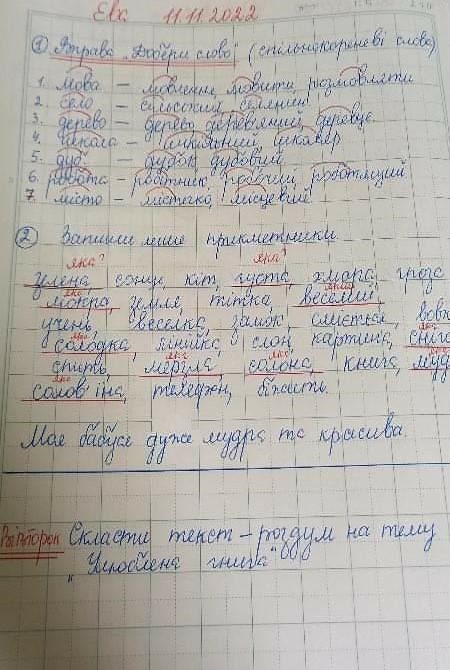 Ева 11.11.2022
① Вправа „Добери слово" (спільнокореневі слова)
1. Мова – мовлення, мовити, розмовляти
2. село – сільський, селянин
3. дерево – дерево, дерев'яний, деревце
4. школа – шкільний, школяр
5. дуб – дубок, дубовий
6. робота – робітник, робочий, роботящий
7. місто – містечко, місцевий
② Запиши лише прикметники
яка? яка?
зелена, сонце, кіт, густа, хмара, гроза
яка який
мокра, земля, тітка, веселий,
учень, веселка, замок, сміється, вовк
яка
солодка, лінійка, слон, картина,
яка яка
спить, мерзла, солона, книга,
яка
солов'їна, телефон, біжить.
Моя бабуся дуже мудра та красива.
Вівторок Скласти текст – роздум на тему
„Улюблена книга"